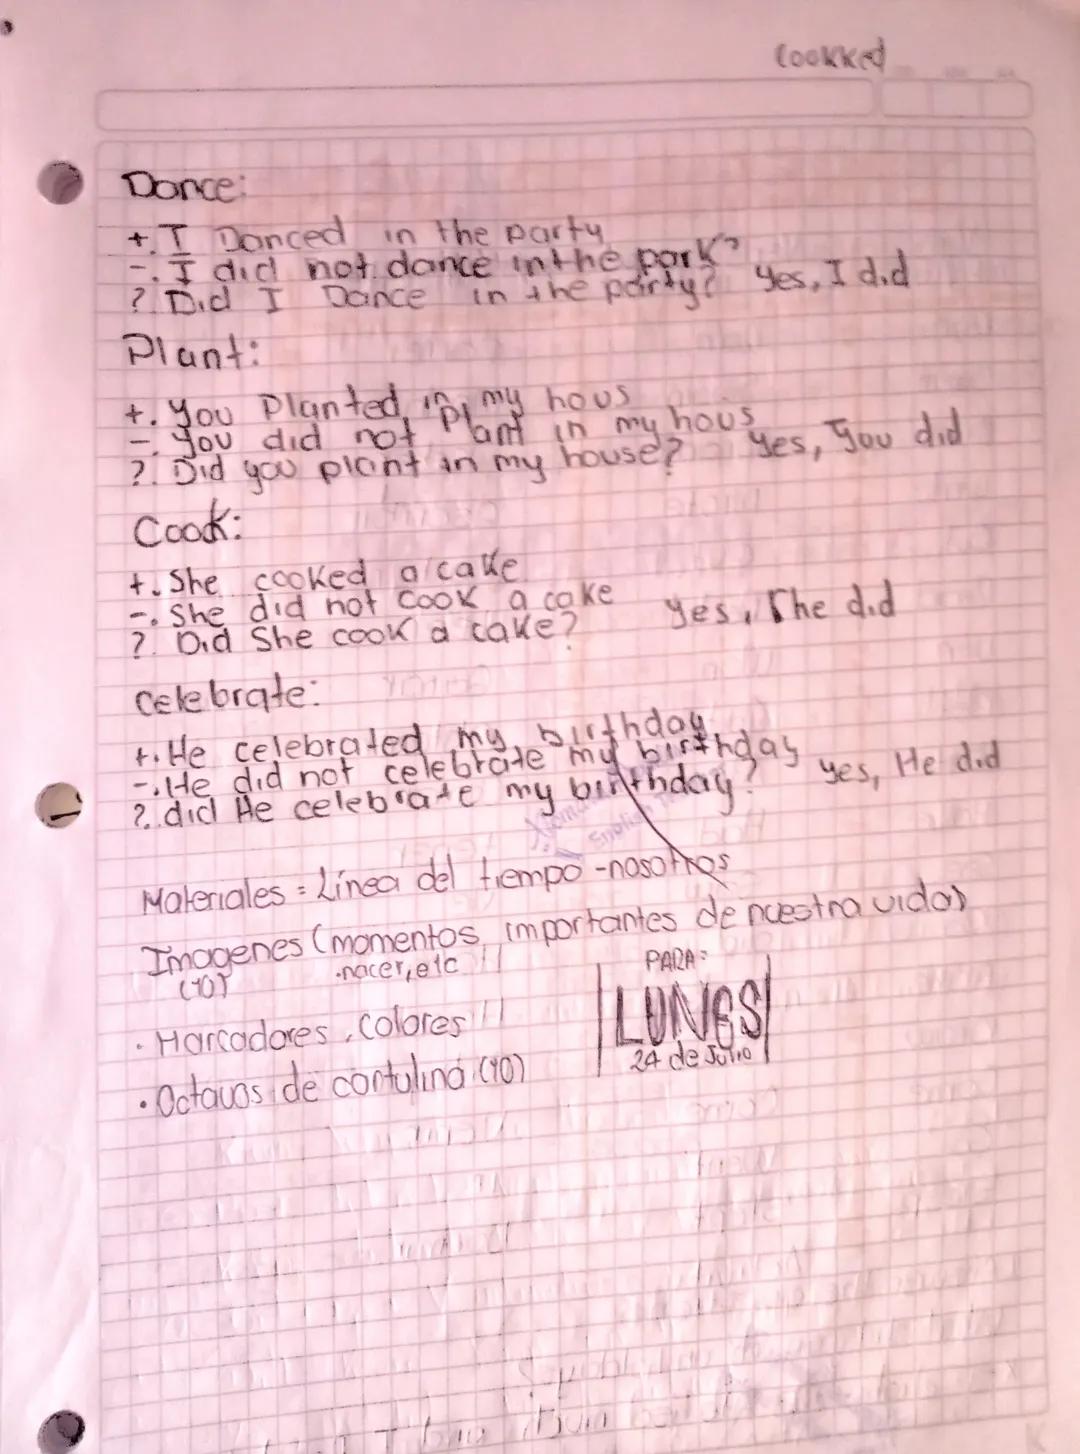 Cookked
Dance:
+. I Danced in the party
-. I did not dance in the park?
?. Did I Dance in the party? Yes, I did
Plant:
+. You Planted in my hous
- You did not Plant in my hous
?. Did you plant in my house? Yes, you did
Cook:
+. She cooked a cake
-. She did not cook a cake
?. Did She cook a cake? yes, She did
celebrate:
+. He celebrated my birthday
-. He did not celebrate my birthday
?. did He celebrate my birthday? yes, He did
English
Materiales = Línea del tiempo - nosotros
Imagenes (momentos importantes de nuestra vida)
(10) .nacer, etc
PARA:
LUNES
24 de Julio
• Marcadores, colores
• Octavos de cartulina (10)